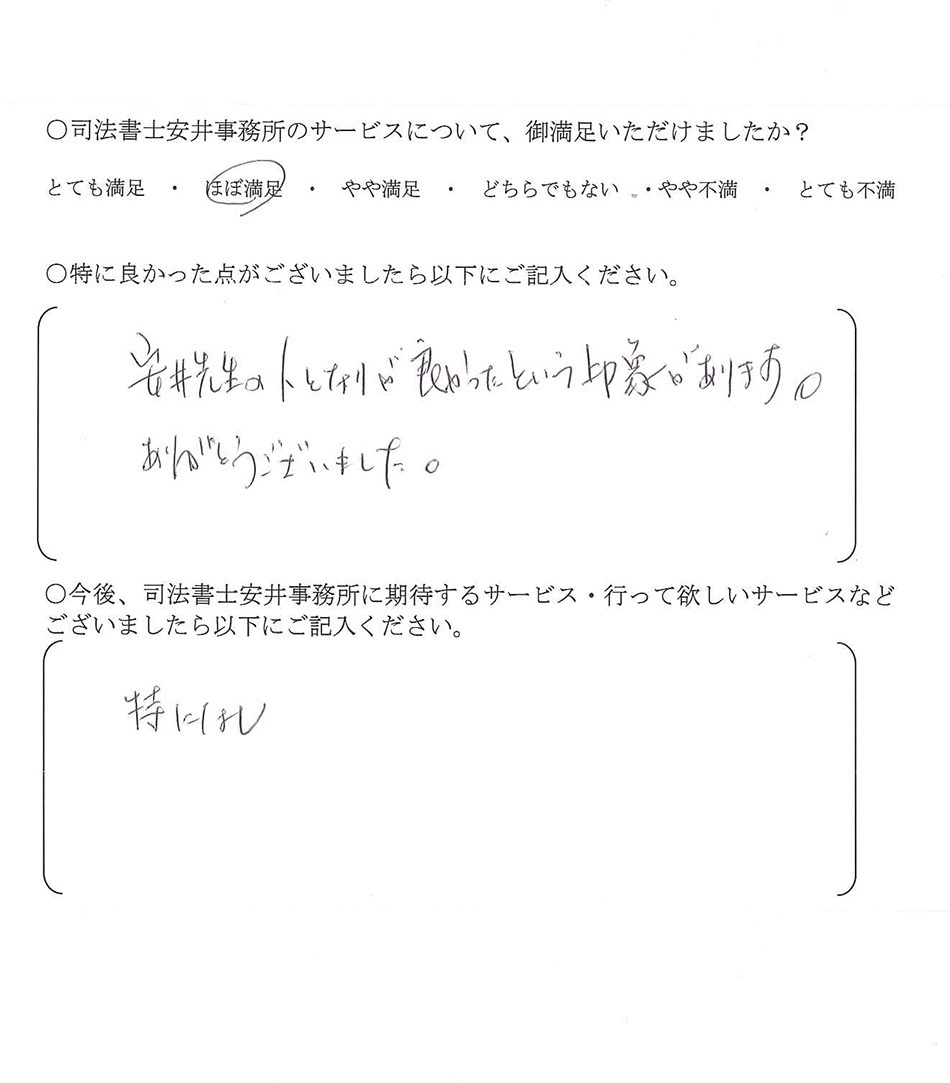 〇司法書士安井事務所のサービスについて、御満足いただけましたか？
とても満足 ・ ほぼ満足 ・ やや満足 ・ どちらでもない ・やや不満 ・ とても不満
〇特に良かった点がございましたら以下にご記入ください。
安井先生の人となりが良かったという印象があります。
ありがとうございました。
〇今後、司法書士安井事務所に期待するサービス・行って欲しいサービスなど
ございましたら以下にご記入ください。
特になし